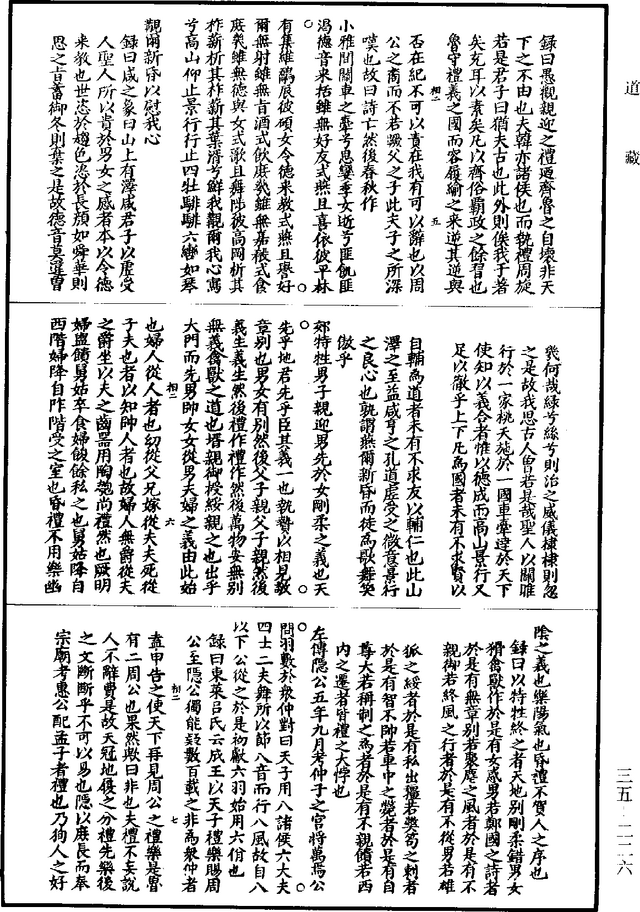 道藏
錄曰愚觀親迎之禮迺齊魯之自壞非天
下之不由也夫韓亦諸侯也而執禮周旋
若是君子曰猶夫古也此外則俟我于著
矣充耳以素矣凡以齊俗霸政之餘習也
魯守禮義之國而容履緰之来逆其逆與
否在紀不可以責在我有可以辭也以周
公之裔而不若蹶父之子此夫子之所深
嘆也故曰詩亡然後春秋作
小雅間關車之舝兮思孌季女逝兮匪飢匪
渴德音来括雖無好友式燕且喜依彼平林
有集維鷮辰彼碩女令德来教式燕且譽好
爾無射雖無旨酒式飲庶幾雖無嘉殽式食
庶幾雖無德與女式歌且舞陟彼高岡析其
柞薪析其柞薪其葉湑兮鮮我覯爾我心寫
兮高山仰止景行行止四牡騑騑六轡如琴
覯爾新昏以慰我心
錄曰咸之象曰山上有澤咸君子以虛受
人聖人所以貴於男女之感者本以令德
来教也世恣於趨色恣於長顏如舜華則
思之旨蓄御冬則棄之是故德音莫違曾
幾何哉綠兮絲兮則治之威儀棣棣則忽
之是故我思古人曾若是哉聖人以關雎
行於一家桃夭施於一國車舝達於天下
使知以義合者惟以德成而高山景行又
足以儆乎上下凡為國者未有不求賢以
自輔為道者未有不求友以輔仁也此山
澤之至益咸亨之孔道虛受之微意景行
之良心也孰謂燕爾新昏而徒為歌舞笑
傲乎
郊特牲男子親迎男先於女剛柔之義也天
先乎地君先乎臣其義一也執贄以相見敬
章別也男女有別然後父子親父子親然後
義生義生然後禮作禮作然後萬物安無別
無義禽獸之道也壻親御授綏親之也出乎
大門而先男帥女女從男夫婦之義由此始
也婦人從人者也幼從父兄嫁從夫夫死從
子夫也者以知帥人者也故婦人無爵從夫
之爵坐以夫之齒器用陶匏尚禮然也厥明
婦盥饋舅姑卒食婦餕餘私之也舅姑降自
西階婦降自阼階受之室也昏禮不用樂幽
陰之義也樂陽氣也昏禮不賀人之序也
錄曰以特牲終之者天地別剛柔錯男女
猾禽獸作於是有女惑男若鄭國之詩者
於是有無章別若聚麀之風者於是有不
親御若終風之行者於是有不從男若雄
狐之綏者於是有私出獨若獘笱之刺者
於是有智不帥若車中之斃者於是有自
專大若稱制之為者於是有不親饋若西
内之遷者皆禮之大悖也
左傳隱公五年九月考仲子之宮將萬焉公
問羽數於衆仲對曰天子用八諸侯六大夫
四士二夫舞所以節八音而行八風故自八
以下公從之於是初獻六羽始用六佾也
錄曰東萊吕氏云成王以天子禮樂賜周
公至隱公獨能疑數百載之非為衆仲者
盍申告之使天下再見周公之禮樂是魯
有二周公也果然歟曰非也夫禮不妄說
人不辭費是故天冠地履之分禮先樂後
之文斷斷乎不可以易也隱以庶長而奉
宗廟考惠公配孟子者禮也乃徇人之好
相二
五
相二
六
相二
七
三五-二二六